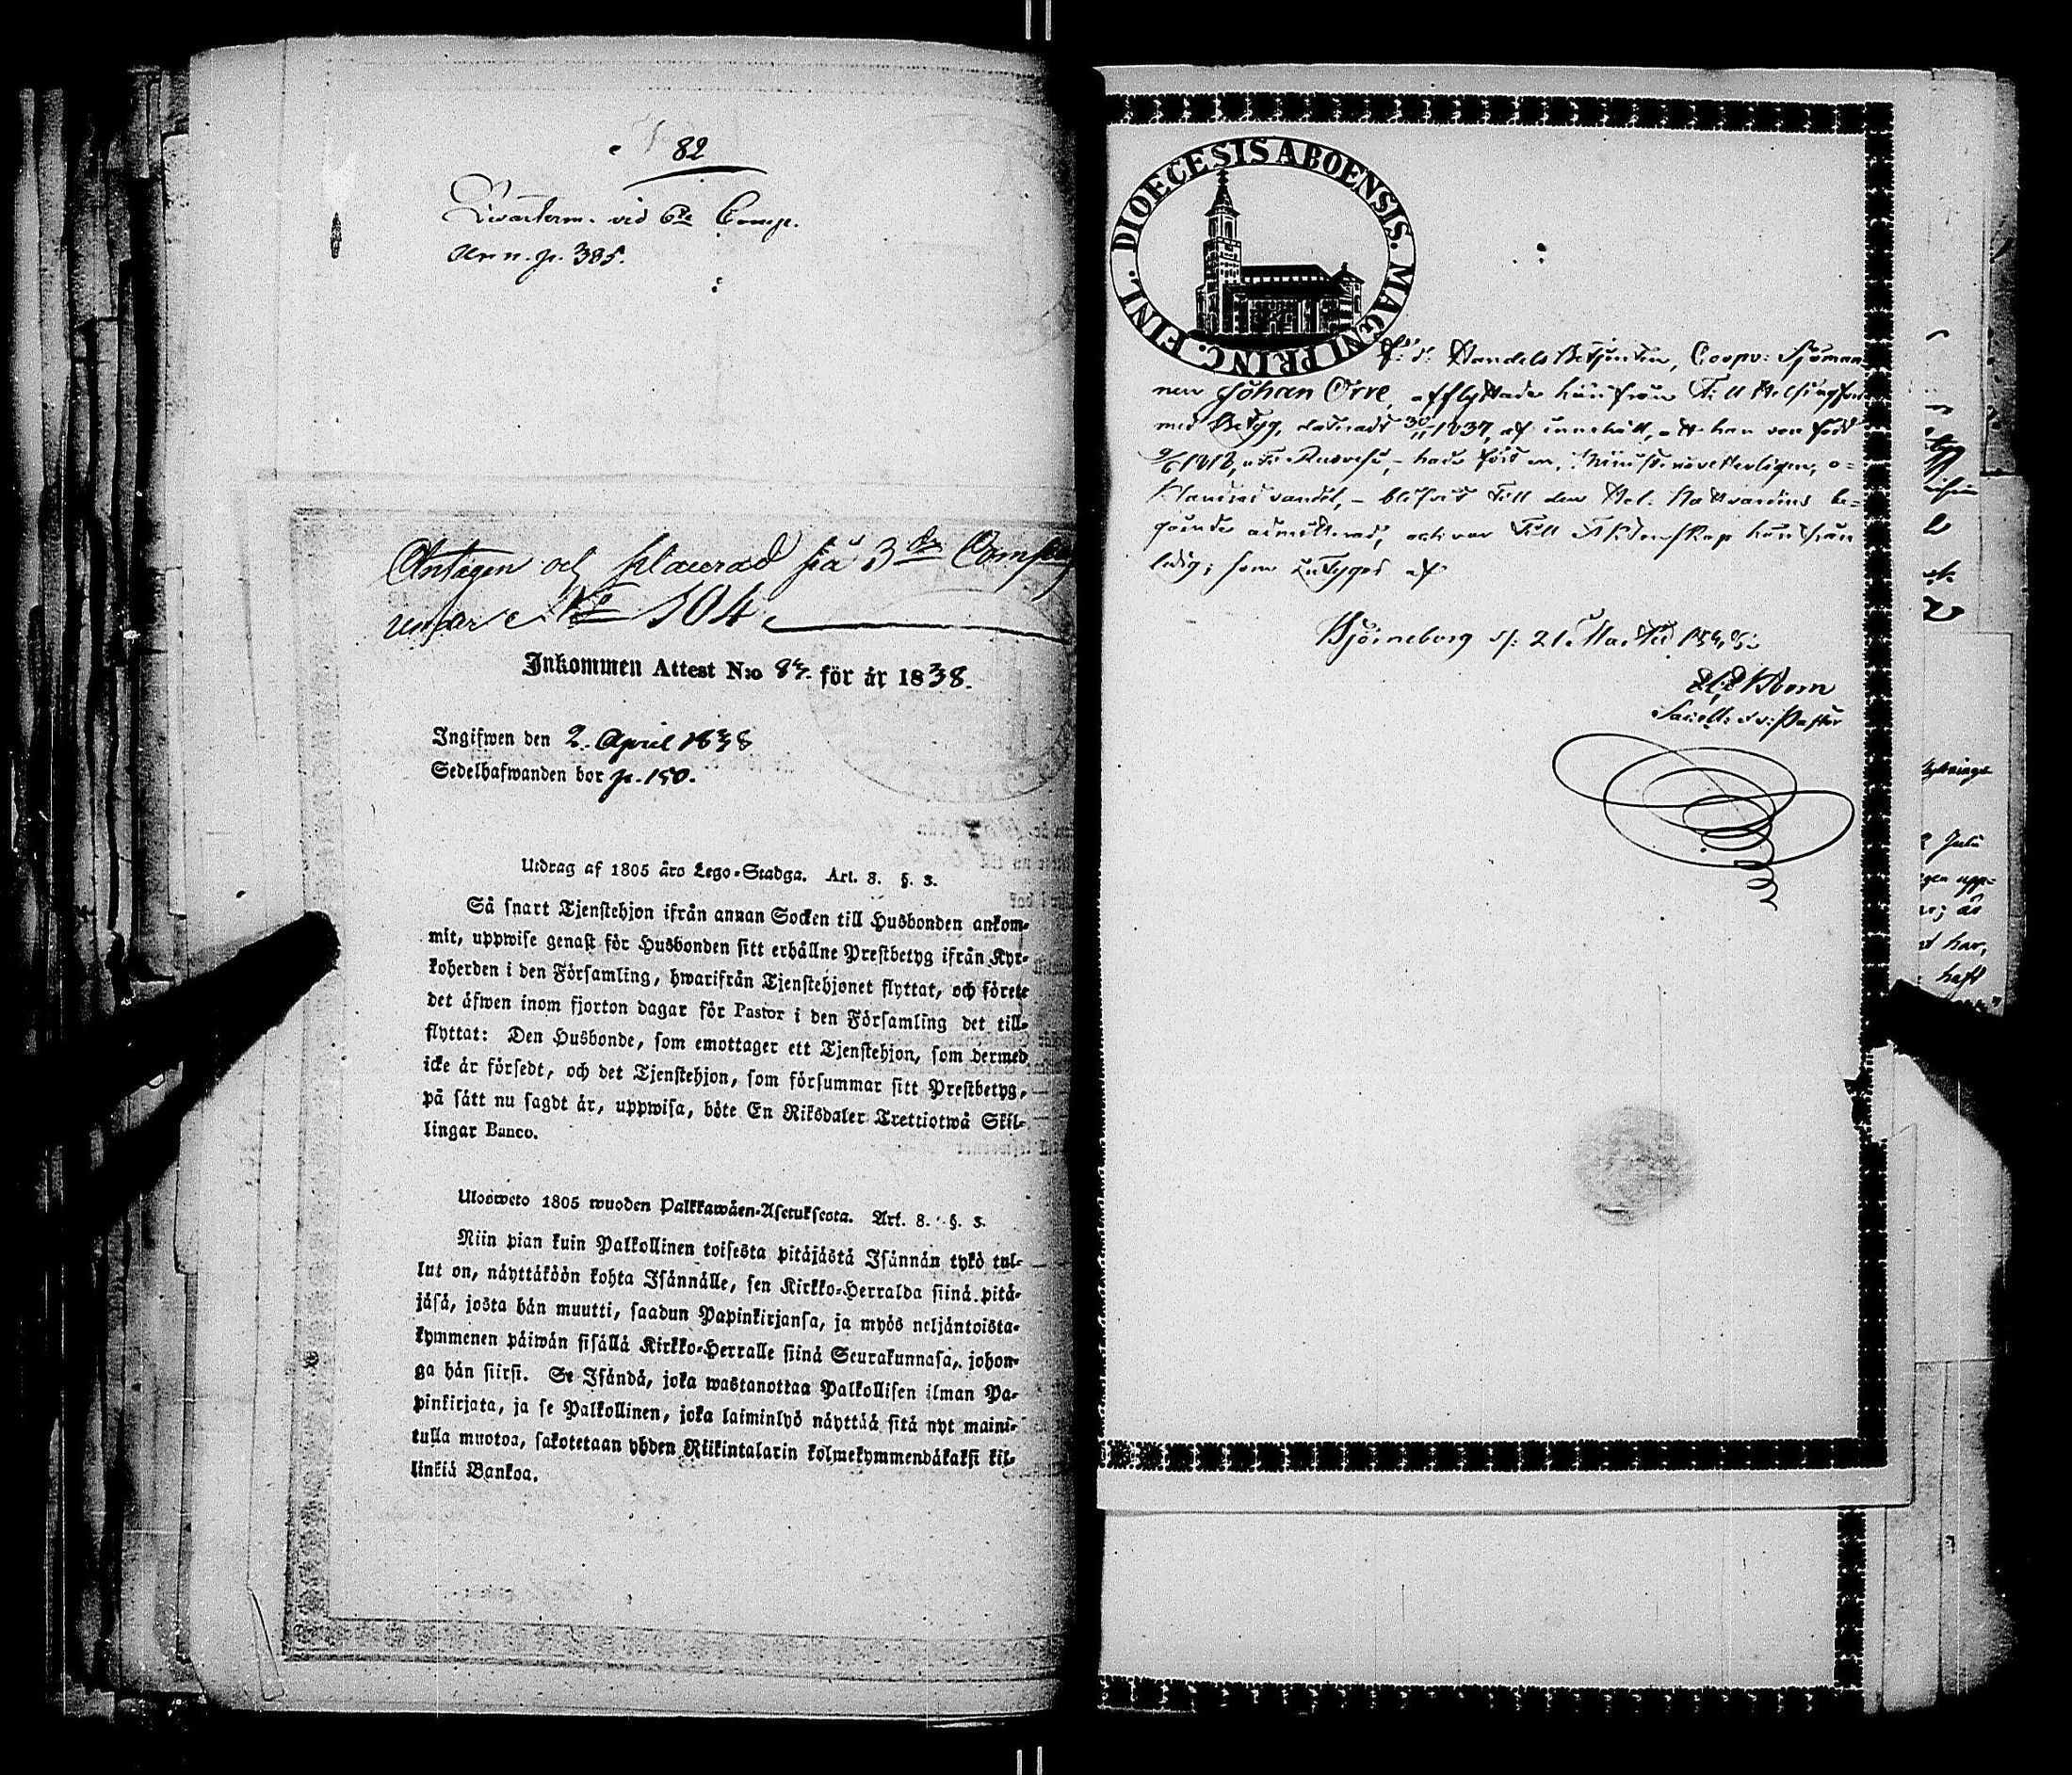 82
Qvarterm. vid 6te Comp.
Ann. p. 305.
Antagen och placerad på 3dje Comp
under No 104
Inkommen Attest N:o 83. för år 1838.
Ingifwen den 2. April 1838
Sedelhafwanden bor p. 150.
Utdrag af 1805 års Lego-Stadga. Art. 8. §. 3.
Så snart Tjenstehjon ifrån annan Socken till Husbonden ankom-
mit, uppwise genast för Husbonden sitt erhållne Prestbetyg ifrån Kyr-
koherden i den Församling, hwarifrån Tjenstehjonet flyttat, och förete
det äfwen inom fjorton dagar för Pastor i den Församling det till-
flyttat: Den Husbonde, som emottager ett Tjenstehjon, som dermed
icke är försedt, och det Tjenstehjon, som försummar sitt Prestbetyg,
på sätt nu sagdt är, uppwisa, böte En Riksdaler Trettiotwå Skil-
lingar Banco.
Ulosweto 1805 wuoden Palkkawäen-Asetuksesta. Art. 8. §. 3.
Niin pian kuin Palkollinen toisesta pitäjästä Isännän tykö tul-
lut on, näyttäköön kohta Isännälle, sen Kirkko-Herralda siinä pitä-
jäsä, josta hän muutti, saadun Papinkirjansa, ja myös neljäntoista-
kymmenen päiwän sisällä Kirkko-Herralle siinä Seurakunnasa, johon-
ga hän siirsi. Se Isändä, joka wastanottaa Palkollisen ilman Pa-
pinkirjata, ja se Palkollinen, joka laiminlyö näyttää sitä nyt maini-
tulla muotoa, sakotetaan yhden Riikintalarin kolmekymmendäkaksi kil-
linkiä Bankoa.
DIOECESIS ABOENSIS. MAGNI PRINC. FINL.
F. d. Handels Betjenten, Corpv: Sjöman
nen Johan Orre, afflyttade härifrån till Helsingfors
med Betyg, dateradt 30/11 1837, af innehåll, att han var född
9/6 1818, - hade förswarlig Christendomskunskap, o-
klandrad vandel, - blifvit till den Hel. Nattvardens be-
gående admitterad, och var till Äktenskap härifrån
ledig; som intygas af
Björneborg d: 21 Martii 1838.
Sacell: v: Pastor